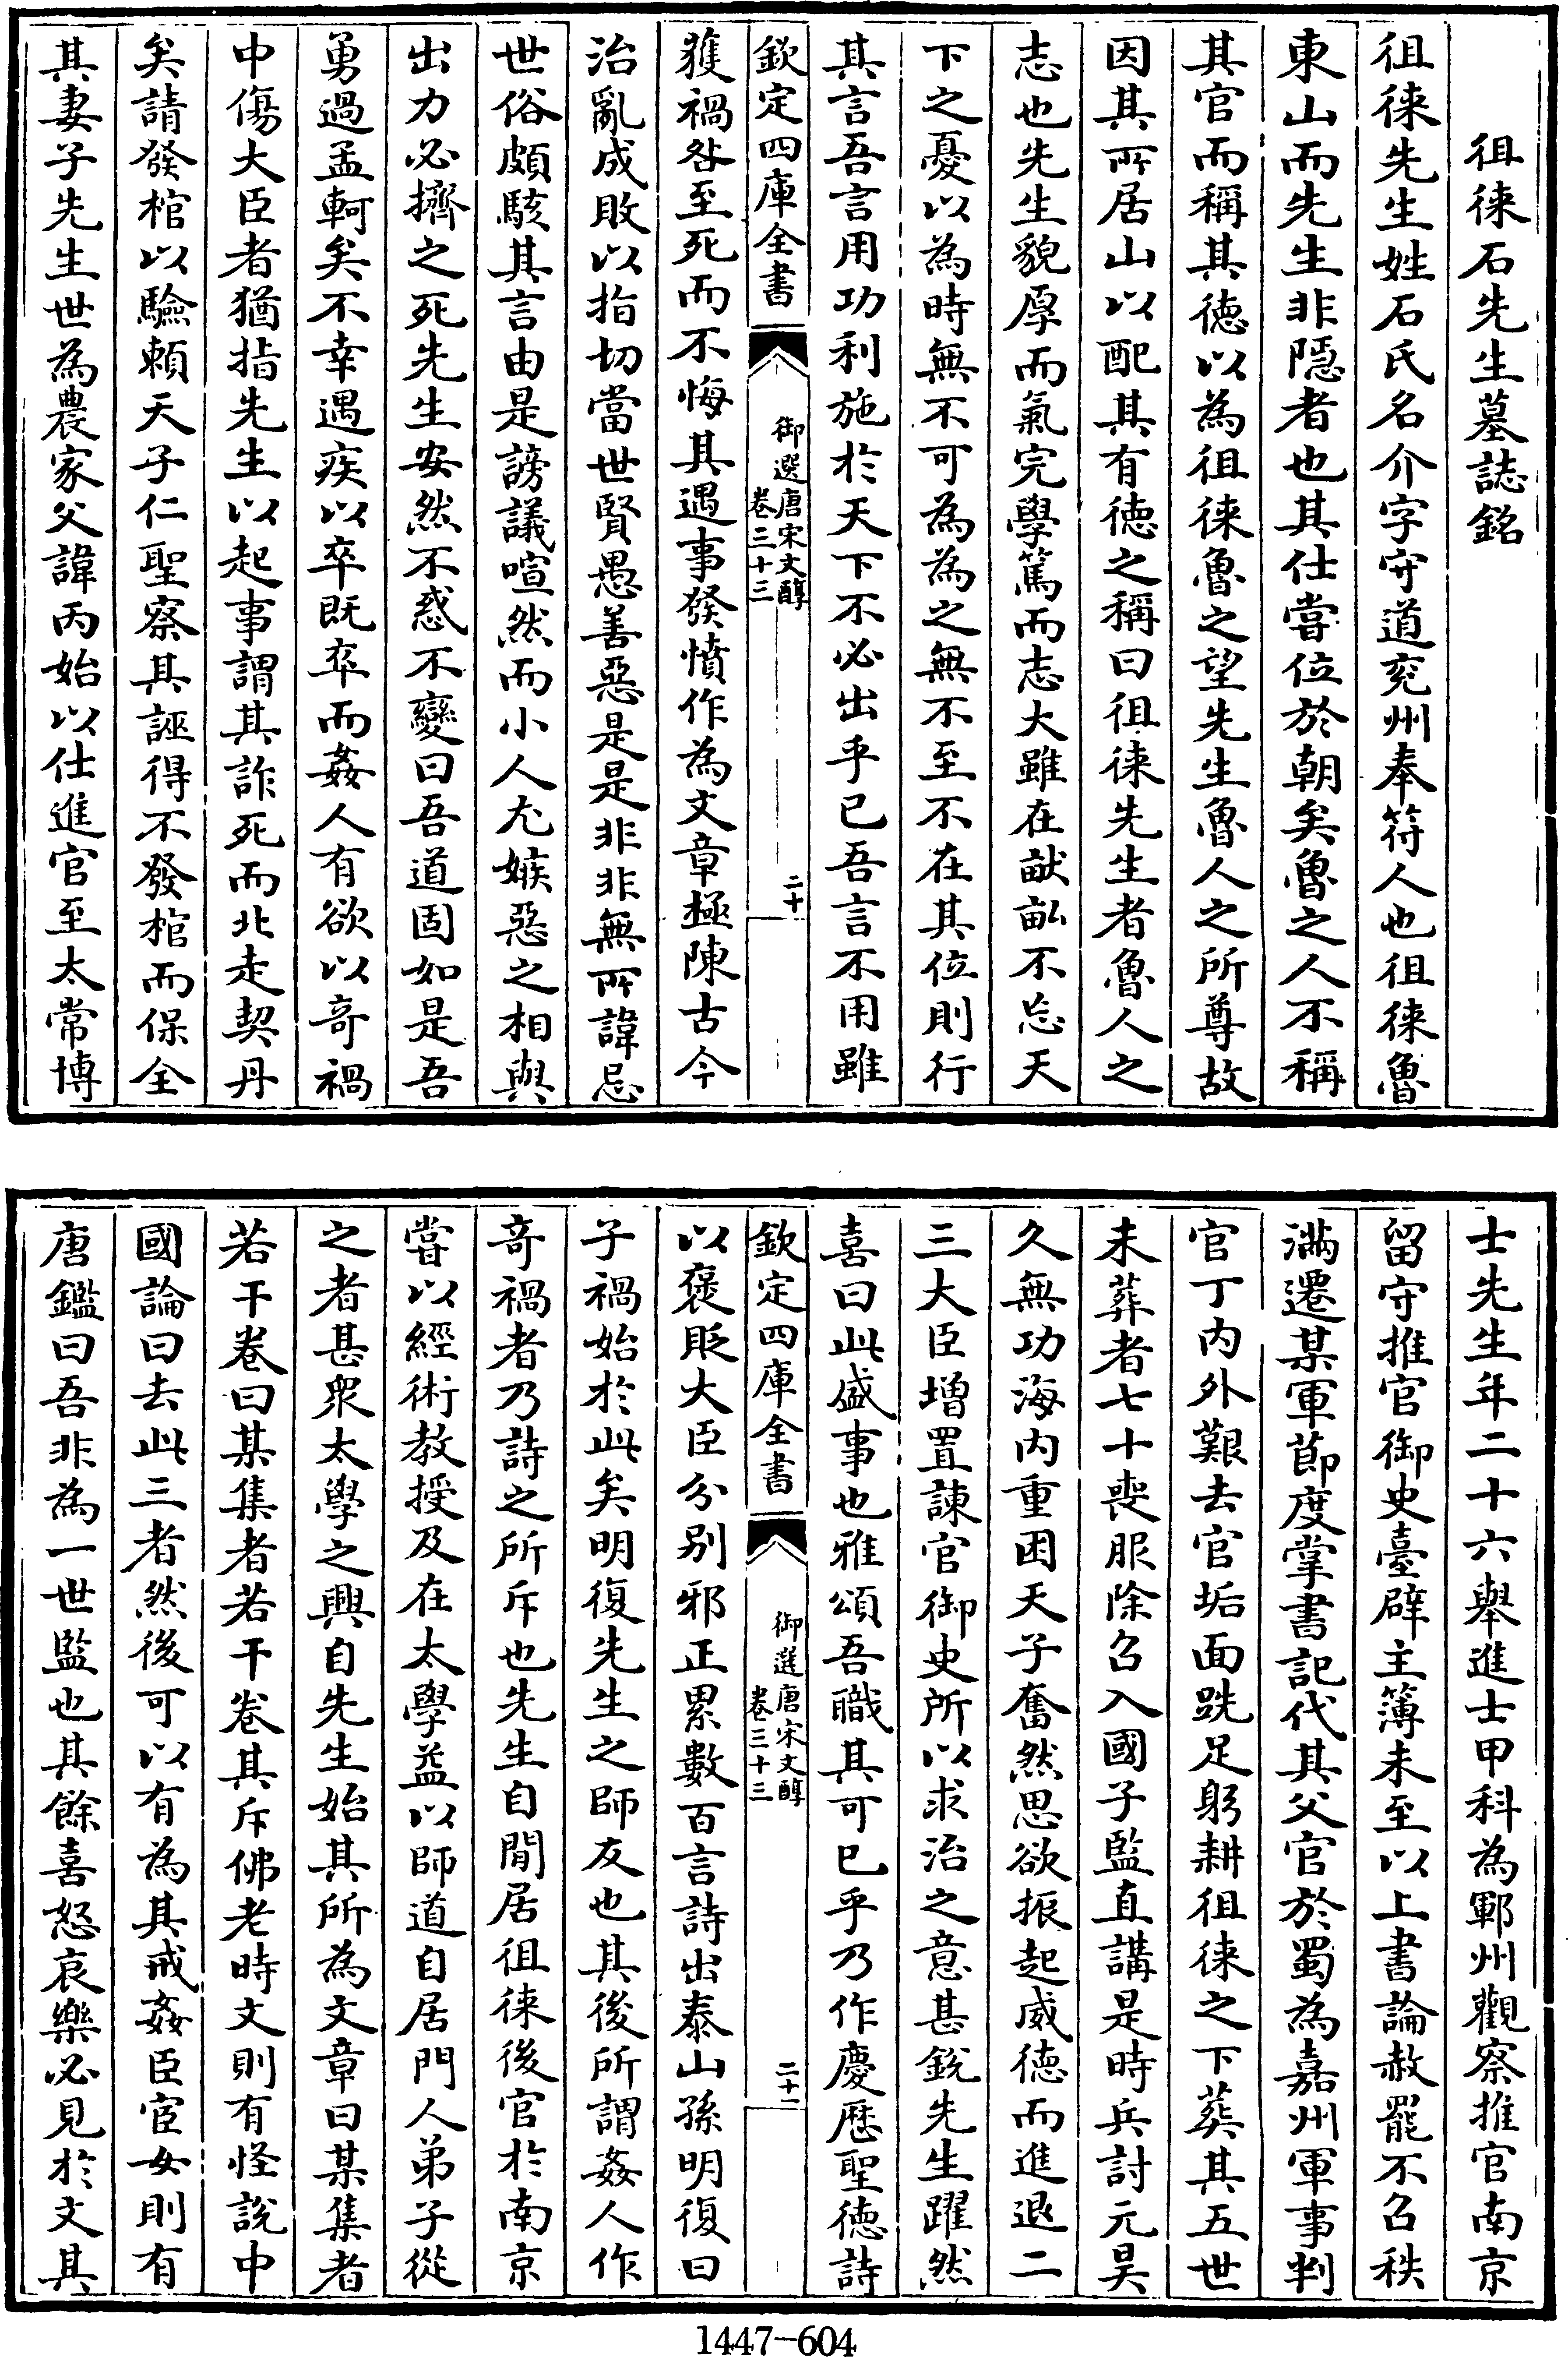 徂徠石先生墓誌銘
徂徠先生姓石氏名介字守道兖州奉符人也徂徠魯
東山而先生非隱者也其仕嘗位於朝矣魯之人不稱
其官而稱其德以為徂徠魯之望先生魯人之所尊故
因其所居山以配其有德之稱曰徂徠先生者魯人之
志也先生貌厚而氣完學篤而志大雖在畎畝不忘天
下之憂以為時無不可為為之無不至不在其位則行
其言吾言用功利施於天下不必出乎已吾言不用雖
欽定四庫全書
御選唐宋文醇
卷三十三
二十
獲禍咎至死而不悔其遇事發憤作為文章極陳古今
治亂成敗以指切當世賢愚善惡是是非非無所諱忌
世俗頗駭其言由是謗議喧然而小人尤嫉惡之相與
出力必擠之死先生安然不惑不變曰吾道固如是吾
勇過孟軻矣不幸遇疾以卒既卒而姦人有欲以竒禍
中傷大臣者猶指先生以起事謂其詐死而北走契丹
矣請發棺以驗賴天子仁聖察其誣得不發棺而保全
其妻子先生世為農家父諱丙始以仕進官至太常博
士先生年二十六舉進士甲科為鄆州觀察推官南京
留守推官御史臺辟主簿未至以上書論赦罷不召秩
滿遷某軍節度掌書記代其父官於蜀為嘉州軍事判
官丁内外艱去官垢面跣足躬耕徂徠之下葬其五世
未葬者七十喪服除召入國子監直講是時兵討元昊
久無功海内重困天子奮然思欲振起威德而進退二
三大臣增置諫官御史所以求治之意甚銳先生躍然
喜曰此盛事也雅頌吾職其可已乎乃作慶歷聖德詩
欽定四庫全書
御選唐宋文醇
卷三十三
二十一
以褒貶大臣分别邪正累數百言詩出泰山孫明復曰
子禍始於此矣明復先生之師友也其後所謂姦人作
竒禍者乃詩之所斥也先生自閒居徂徠後官於南京
嘗以經術教授及在太學益以師道自居門人弟子從
之者甚衆太學之興自先生始其所為文章曰某集者
若干卷曰某集者若干卷其斥佛老時文則有怪說中
國論曰去此三者然後可以有為其戒姦臣宦女則有
唐鑑曰吾非為一世監也其餘喜怒哀樂必見於文其
1447-604